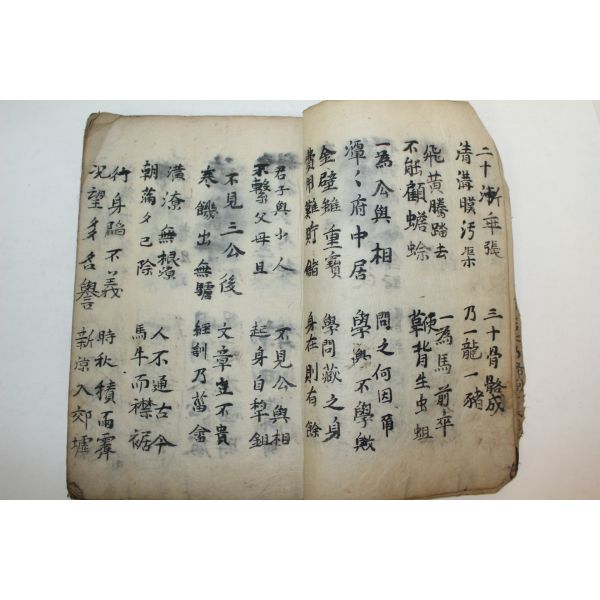 二十漸乖張 三十骨骼成
清溝膜汚渠 乃一龍一豬
飛黃騰踏去 一為馬前卒
不能顧蟾蜍 鞭背生虫蛆
一為公與相 問之何因爾
潭〻府中居 學與不學歟
金璧雖重寶 學問藏之身
費用難貯儲 身在則有餘
君子與小人 不見公與相
不繫父母且 起身自犂鉏
不見三公後 文章豈不貴
寒饑出無驢 經訓乃菑畬
潢潦無根源 人不通古今
朝滿夕已除 馬牛而襟裾
行身陷不義 時秋積雨霽
況望多名譽 新凉入郊墟